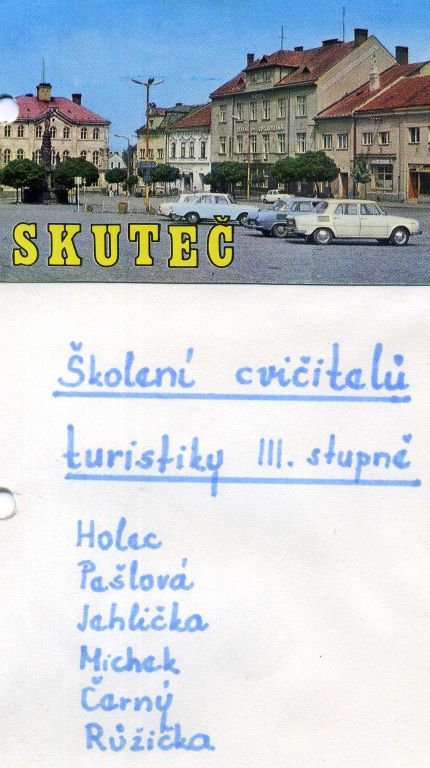 SKUTEČ
Školení cvičitelů
turistiky III. stupně
Holec
Pešlová
Jehlička
Michek
Černý
Růžička